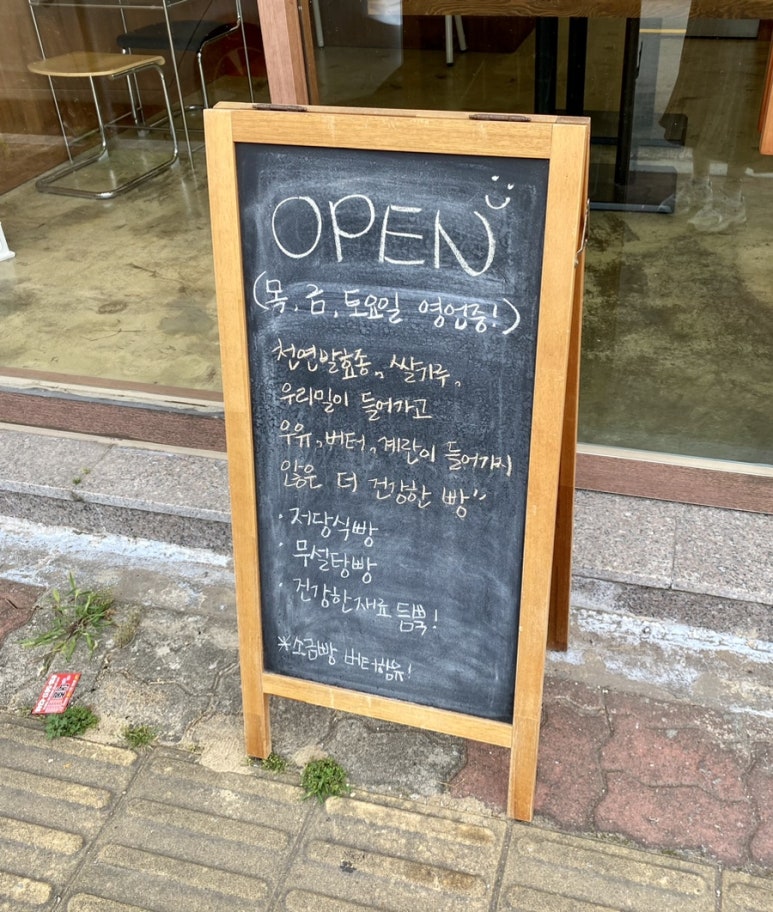 OPEN
(목, 금, 토요일 영업중!)
천연발효종, 쌀가루,
우리밀이 들어가고
우유, 버터, 계란이 들어가지
않은 더 건강한 빵"
· 저당식빵
· 무설탕빵
· 건강한재료 듬뿍!
*소금빵 버터함유!